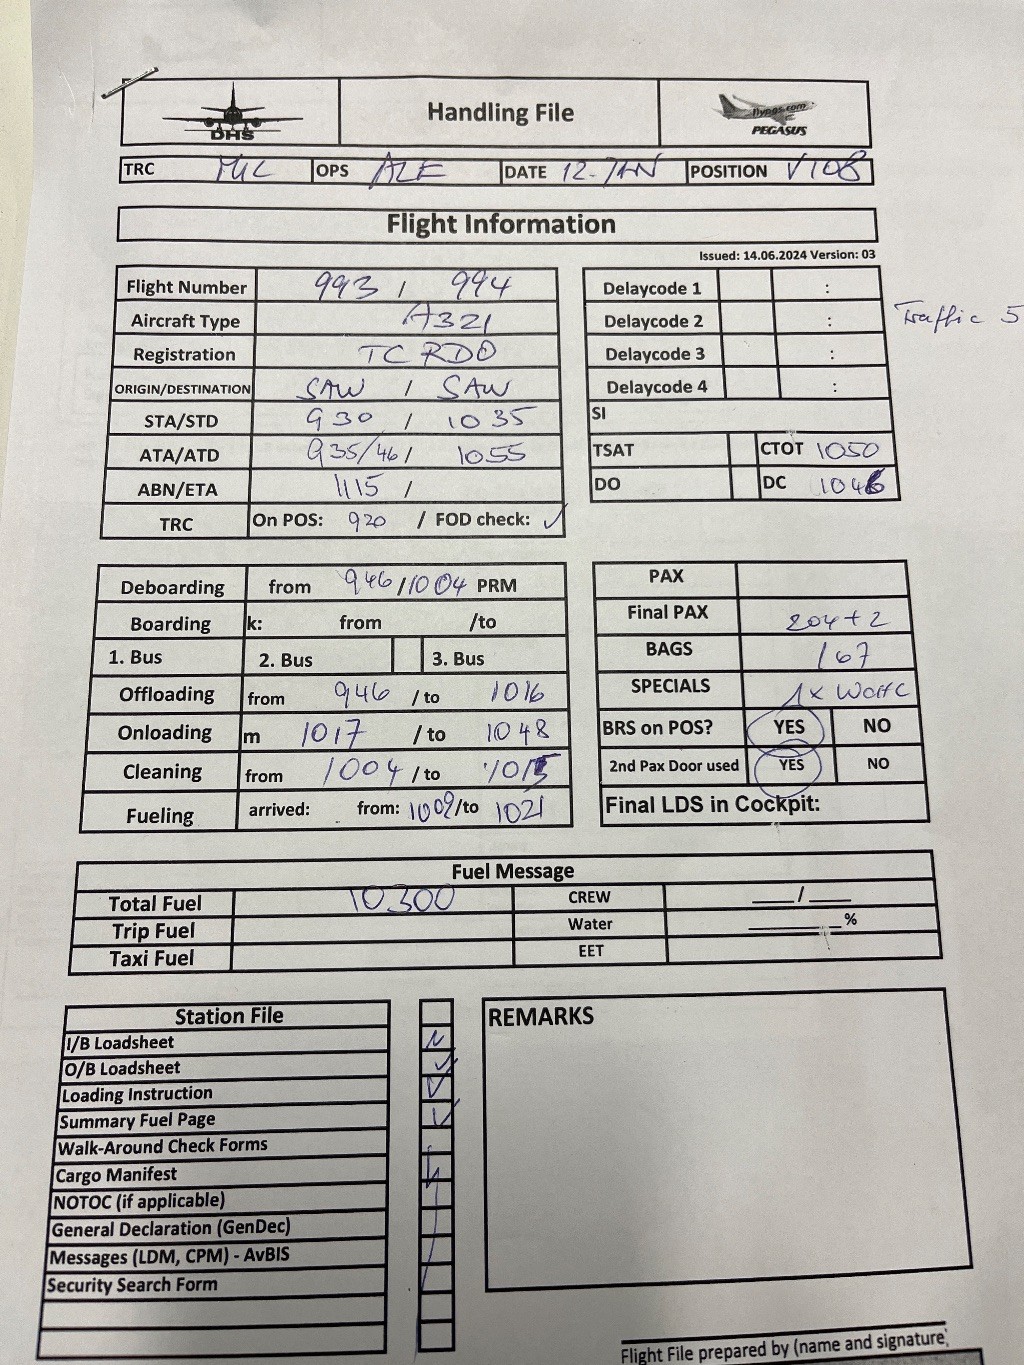 DHS
Handling File
flypgs.com
PEGASUS
TRC OPS ALE DATE 12-JAN POSITION V108
Flight Information
Issued: 14.06.2024 Version: 03
Flight Number 993 / 994
Aircraft Type A321
Registration TC RDO
ORIGIN/DESTINATION SAW / SAW
STA/STD 930 / 1035
ATA/ATD 935/46/ 1055
ABN/ETA 1115 /
TRC On POS: 920 / FOD check: ✓
Delaycode 1 :
Delaycode 2 : Traffic 5
Delaycode 3 :
Delaycode 4 :
SI
TSAT CTOT 1050
DO DC 1046
Deboarding from 946/1004 PRM
Boarding k: from /to
1. Bus 2. Bus 3. Bus
Offloading from 946 / to 1016
Onloading m 1017 / to 1048
Cleaning from 1004 / to 1015
Fueling arrived: from: 1009/to 1021
PAX
Final PAX 204+2
BAGS 167
SPECIALS 1x WCHC
BRS on POS? YES NO
2nd Pax Door used YES NO
Final LDS in Cockpit:
Fuel Message
Total Fuel 10300 CREW ___/___
Trip Fuel Water ______%
Taxi Fuel EET
Station File
I/B Loadsheet
O/B Loadsheet ✓
Loading Instruction ✓
Summary Fuel Page ✓
Walk-Around Check Forms
Cargo Manifest
NOTOC (if applicable)
General Declaration (GenDec)
Messages (LDM, CPM) - AvBIS
Security Search Form
REMARKS
Flight File prepared by (name and signature)